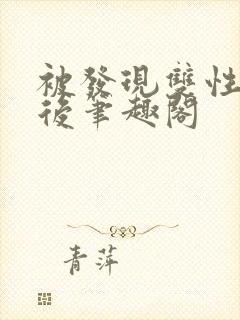 被發現雙性
後筆趣閣
青萍